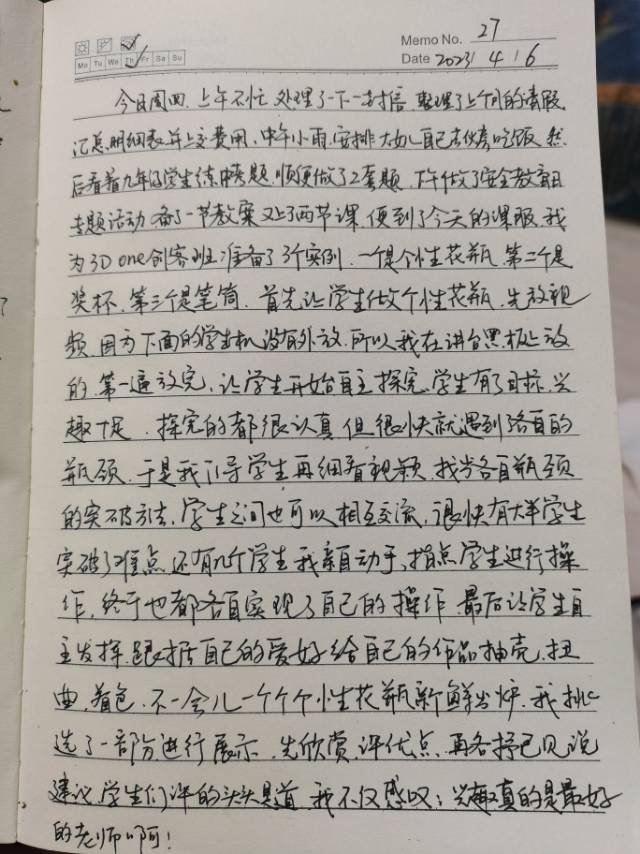 Memo No. 27
Mo Tu We Th Fr Sa Su
Date 2023 / 4 / 6
今日周四,上午不忙,处理了一下一封信,整理了上个月的请假
汇总明细表并上交费用,中午小雨,安排大女儿自己去伙房吃饭,然
后看着九年级学生练中考题,顺便做了2套题,下午做了安全教育日
专题活动,备了一节教案,又上了两节课,便到了今天的课服,我
为3D one创客班准备了3个实例,一个是个性花瓶,第二个是
奖杯,第三个是笔筒,首先让学生做个性花瓶,先放视
频,因为下面的学生机没有外放,所以我在讲台黑板上放
的,第一遍放完,让学生开始自主探究,学生有了目标,兴
趣十足,探究的都很认真,但很快就遇到各自的
瓶颈,于是我引导学生再细看视频,找出各自瓶颈
的突破方法,学生之间也可以相互交流,很快有大半学生
突破了难点,还有几个学生我亲自动手,指点学生进行操
作,终于也都各自实现了自己的操作,最后让学生自
主发挥,跟据自己的爱好给自己的作品抽壳、扭
曲、着色,不一会儿一个个个性花瓶新鲜出炉,我挑
选了一部分进行展示,先欣赏,评优点,再各抒己见说
建议,学生们评的头头是道,我不仅感叹:兴趣真的是最好
的老师啊!